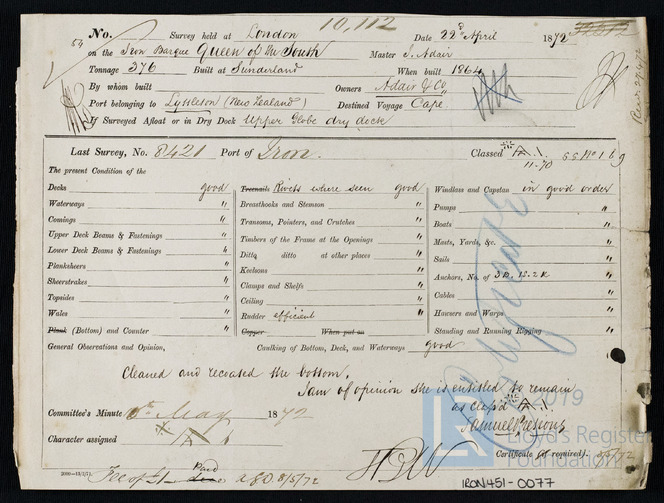 No. Survey held at London 10,112 Date 22d April 1872
54
on the Iron Barque Queen of the South Master J. Adair
Tonnage 376 Built at Sunderland When built 1864
By whom built Owners Adair & Co
Port belonging to Lyttleton (New Zealand) Destined Voyage Cape
If Surveyed Afloat or in Dry Dock Upper Globe dry dock
Last Survey, No. 8421 Port of Iron. Classed A 1.
11.70
The present Condition of the
Decks good
Waterways "
Comings "
Upper Deck Beams & Fastenings "
Lower Deck Beams & Fastenings "
Planksheers "
Sheerstrakes "
Topsides "
Wales "
Plank (Bottom) and Counter "
Treenails Rivets where seen good
Breasthooks and Stemson "
Transoms, Pointers, and Crutches "
Timbers of the Frame at the Openings "
Ditto ditto at other places "
Keelsons "
Clamps and Shelfs "
Ceiling "
Rudder efficient "
Copper When put on
Windlass and Capstan in good order
Pumps "
Boats "
Masts, Yards, &c. "
Sails "
Anchors, No. of 3B. 1S. 2K "
Cables "
Hawsers and Warps "
Standing and Running Rigging "
General Observations and Opinion, Caulking of Bottom, Deck, and Waterways good
Cleaned and recoated the bottom.
I am of opinion she is entitled to remain
as Class'd A 1.
Committee's Minute May 1872
Samuel Pressous
Character assigned A
Certificate (if required). 8/5/72
Fee of £1 Paid 8/5/72
IRON451-0077
2019
LR Lloyd's Register
Foundation